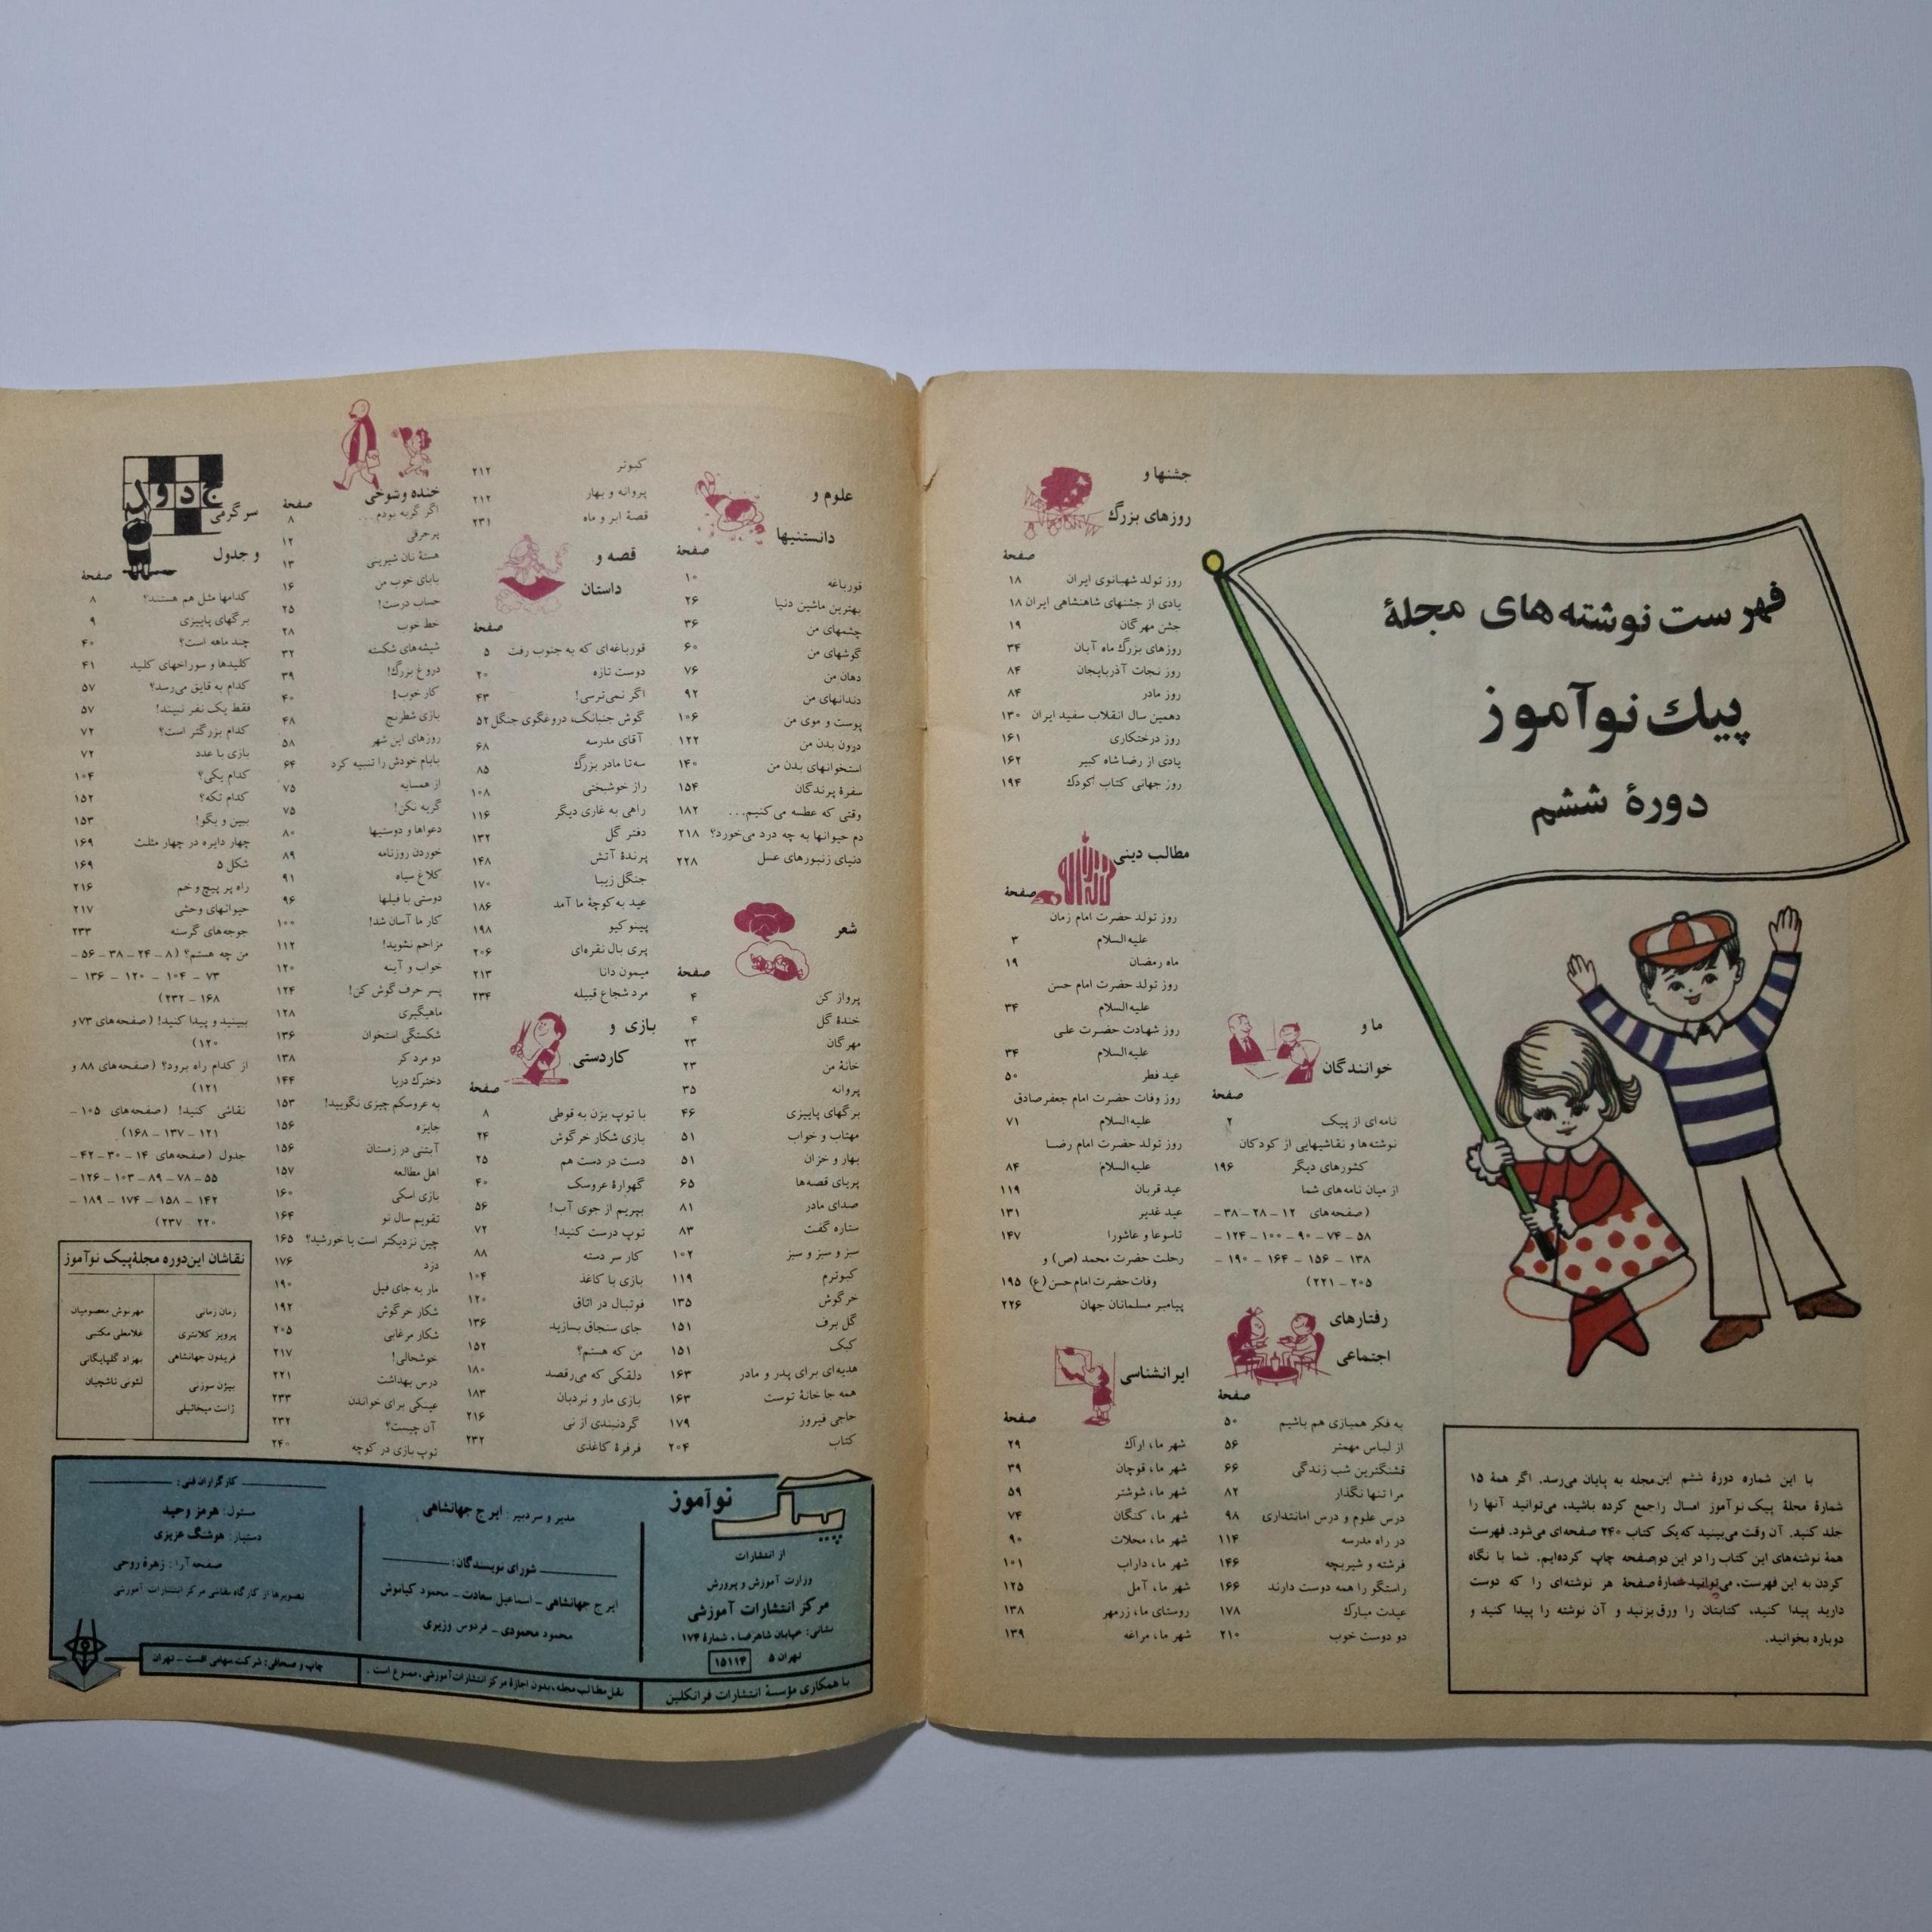 فهرست نوشته‌های مجلهٔ
پیک نوآموز
دورهٔ ششم
با این شماره دورهٔ ششم این مجله به پایان می‌رسد. اگر همهٔ ۱۵
شمارهٔ مجلهٔ پیک نوآموز امسال را جمع کرده باشید، می‌توانید آنها را
جلد کنید. آن وقت می‌بینید که یک کتاب ۲۴۰ صفحه‌ای می‌شود. فهرست
همهٔ نوشته‌های این کتاب را در این دو صفحه چاپ کرده‌ایم. شما با نگاه
کردن به این فهرست، می‌توانید شمارهٔ صفحهٔ هر نوشته‌ای را که دوست
دارید پیدا کنید، کتابتان را ورق بزنید و آن نوشته را پیدا کنید و
دوباره بخوانید.
ما و
خوانندگان
صفحهٔ
نامه‌ای از پیک ۲
نوشته‌ها و نقاشیهایی از کودکان
کشورهای دیگر ۱۹۶
از میان نامه‌های شما
(صفحه‌های ۱۲ – ۲۸ – ۳۸ –
۵۸ – ۷۴ – ۹۰ – ۱۰۰ – ۱۲۴ –
۱۳۸ – ۱۵۶ – ۱۶۴ – ۱۹۰ –
۲۰۵ – ۲۲۱)
رفتارهای
اجتماعی
صفحهٔ
به فکر همبازی هم باشیم ۵۰
از لباس مهمتر ۵۶
قشنگترین شب زندگی ۶۶
مرا تنها نگذار ۸۲
درس علوم و درس امانتداری ۹۸
در راه مدرسه ۱۱۴
فرشته و شیربچه ۱۴۶
راستگو را همه دوست دارند ۱۶۶
عیدت مبارک ۱۷۸
دو دوست خوب ۲۱۰
جشنها و
روزهای بزرگ
صفحهٔ
روز تولد شهبانوی ایران ۱۸
یادی از جشنهای شاهنشاهی ایران ۱۸
جشن مهرگان ۱۹
روزهای بزرگ ماه آبان ۳۴
روز نجات آذربایجان ۸۴
روز مادر ۸۴
دهمین سال انقلاب سفید ایران ۱۳۰
روز درختکاری ۱۶۱
یادی از رضا شاه کبیر ۱۶۲
روز جهانی کتاب کودک ۱۹۴
مطالب دینی
صفحهٔ
روز تولد حضرت امام زمان
علیه‌السلام ۳
ماه رمضان ۱۹
روز تولد حضرت امام حسن
علیه‌السلام ۳۴
روز شهادت حضرت علی
علیه‌السلام ۳۴
عید فطر ۵۰
روز وفات حضرت امام جعفر صادق
علیه‌السلام ۷۱
روز تولد حضرت امام رضا
علیه‌السلام ۸۴
عید قربان ۱۱۹
عید غدیر ۱۳۱
تاسوعا و عاشورا ۱۴۷
رحلت حضرت محمد (ص) و
وفات حضرت امام حسن (ع) ۱۹۵
پیامبر مسلمانان جهان ۲۲۶
ایرانشناسی
صفحهٔ
شهر ما، اراک ۲۹
شهر ما، قوچان ۳۹
شهر ما، شوشتر ۵۹
شهر ما، کنگان ۷۴
شهر ما، محلات ۹۰
شهر ما، داراب ۱۰۱
شهر ما، آمل ۱۲۵
روستای ما، زرمهر ۱۳۸
شهر ما، مراغه ۱۳۹
علوم و
دانستنیها
صفحهٔ
قورباغه ۱۰
بهترین ماشین دنیا ۲۶
چشمهای من ۳۶
گوشهای من ۶۰
دهان من ۷۶
دندانهای من ۹۲
پوست و موی من ۱۰۶
درون بدن من ۱۲۲
استخوانهای بدن من ۱۴۰
سفرهٔ پرندگان ۱۵۴
وقتی که عطسه می‌کنیم... ۱۸۲
دم حیوانها به چه درد می‌خورد؟ ۲۱۸
دنیای زنبورهای عسل ۲۲۸
شعر
صفحهٔ
پرواز کن ۴
خندهٔ گل ۴
مهرگان ۲۳
خانهٔ من ۲۳
پروانه ۳۵
برگهای پاییزی ۴۶
مهتاب و خواب ۵۱
بهار و خزان ۵۱
پریای قصه‌ها ۶۵
صدای مادر ۸۱
ستاره گفت ۸۳
سبز و سبز و سبز ۱۰۲
کبوترم ۱۱۹
خرگوش ۱۳۵
گل برف ۱۵۱
کبک ۱۵۱
هدیه‌ای برای پدر و مادر ۱۶۳
همه جا خانهٔ توست ۱۶۳
حاجی فیروز ۱۷۹
کتاب ۲۰۴
کبوتر ۲۱۲
پروانه و بهار ۲۱۲
قصهٔ ابر و ماه ۲۳۱
قصه و
داستان
صفحهٔ
قورباغه‌ای که به جنوب رفت ۵
دوست تازه ۲۰
اگر نمی‌ترسی! ۴۳
گوش جنبانک، دروغگوی جنگل ۵۲
آقای مدرسه ۶۸
سه تا مادر بزرگ ۸۵
راز خوشبختی ۱۰۸
راهی به غاری دیگر ۱۱۶
دفتر گل ۱۳۲
پرندهٔ آتش ۱۴۸
جنگل زیبا ۱۷۰
عید به کوچهٔ ما آمد ۱۸۶
پینوکیو ۱۹۸
پری بال نقره‌ای ۲۰۶
میمون دانا ۲۱۳
مرد شجاع قبیله ۲۳۴
بازی و
کاردستی
صفحهٔ
با توپ بزن به قوطی ۸
بازی شکار خرگوش ۲۴
دست در دست هم ۲۵
گهوارهٔ عروسک ۴۰
بپریم از جوی آب! ۵۶
توپ درست کنید! ۷۲
کار سر دسته ۸۸
بازی با کاغذ ۱۰۴
فوتبال در اتاق ۱۲۰
جای سنجاق بسازید ۱۳۶
من که هستم؟ ۱۵۲
دلقکی که می‌رقصد ۱۸۰
بازی مار و نردبان ۱۸۳
گردنبندی از نی ۲۱۶
فرفرهٔ کاغذی ۲۳۲
خنده و شوخی
صفحهٔ
اگر گربه بودم... ۸
پرحرفی ۱۲
هستهٔ نان شیرینی ۱۳
بابای خوب من ۱۶
حساب درست! ۲۵
خط خوب ۲۸
شیشه‌های شکسته ۳۲
دروغ بزرگ! ۳۹
کار خوب! ۴۰
بازی شطرنج ۴۸
روزهای این شهر ۵۸
بابام خودش را تنبیه کرد ۶۴
از همسایه ۷۵
گربه نکن! ۷۵
دعواها و دوستیها ۸۰
خوردن روزنامه ۸۹
کلاغ سیاه ۹۱
دوستی با فیلها ۹۶
کار ما آسان شد! ۱۰۰
مزاحم نشوید! ۱۱۲
خواب و آینه ۱۲۰
پسر حرف گوش کن! ۱۲۴
ماهیگیری ۱۲۸
شکستگی استخوان ۱۳۶
دو مرد کر ۱۳۸
دخترک دریا ۱۴۴
به عروسکم چیزی نگویید! ۱۵۳
جایزه ۱۵۶
آبتنی در زمستان ۱۵۶
اهل مطالعه ۱۵۷
بازی اسکی ۱۶۰
تقویم سال نو ۱۶۴
چین نزدیکتر است یا خورشید؟ ۱۶۵
دزد ۱۷۶
مار به جای فیل ۱۹۰
شکار خرگوش ۱۹۲
شکار مرغابی ۲۰۵
خوشحالی! ۲۱۷
درس بهداشت ۲۲۱
عینکی برای خواندن ۲۳۳
آن چیست؟ ۲۳۲
توپ بازی در کوچه ۲۴۰
جدول
سرگرمی
و جدول
صفحهٔ
کدامها مثل هم هستند؟ ۸
برگهای پاییزی ۹
چند ماهه است؟ ۴۰
کلیدها و سوراخهای کلید ۴۱
کدام به قایق می‌رسد؟ ۵۷
فقط یک نفر نبیند! ۵۷
کدام بزرگتر است؟ ۷۲
بازی با عدد ۷۲
کدام یکی؟ ۱۰۴
کدام تکه؟ ۱۵۲
ببین و بگو! ۱۵۳
چهار دایره در چهار مثلث ۱۶۹
شکل ۵ ۱۶۹
راه پر پیچ و خم ۲۱۶
حیوانهای وحشی ۲۱۷
جوجه‌های گرسنه ۲۳۳
من چه هستم؟ (۸ – ۲۴ – ۳۸ – ۵۶ –
۷۳ – ۱۰۴ – ۱۲۰ – ۱۳۶ –
۱۶۸ – ۲۳۲)
ببینید و پیدا کنید! (صفحه‌های ۷۳ و
۱۲۰)
از کدام راه برود؟ (صفحه‌های ۸۸ و
۱۲۱)
نقاشی کنید! (صفحه‌های ۱۰۵ –
۱۲۱ – ۱۳۷ – ۱۶۸)
جدول (صفحه‌های ۱۴ – ۳۰ – ۴۲ –
۵۵ – ۷۸ – ۸۹ – ۱۰۳ – ۱۲۶ –
۱۴۲ – ۱۵۸ – ۱۷۴ – ۱۸۹ –
۲۲۰ – ۲۳۷)
نقاشان این دوره مجلهٔ پیک نوآموز
زمان زمانی
پرویز کلانتری
فریدون جهانشاهی
بیژن سوزنی
ژانت میخائیلی
مهرنوش معصومیان
غلامعلی مکتبی
بهزاد گلپایگانی
لئونی تاشچیان
پیک
نوآموز
از انتشارات
وزارت آموزش و پرورش
مرکز انتشارات آموزشی
نشانی: خیابان شاهرضا، شمارهٔ ۱۷۴
تهران ۵ ۱۵۱۱۴
با همکاری مؤسسهٔ انتشارات فرانکلین
مدیر و سردبیر: ایرج جهانشاهی
شورای نویسندگان:
ایرج جهانشاهی – اسماعیل سعادت – محمود کیانوش
محمود محمودی – فردوس وزیری
نقل مطالب مجله، بدون اجازهٔ مرکز انتشارات آموزشی، ممنوع است.
کارگزاران فنی:
مسئول: هرمز وحید
دستیار: هوشنگ عزیزی
صفحه‌آرا: زهرهٔ روحی
تصویرها از کارگاه نقاشی مرکز انتشارات آموزشی
چاپ و صحافی: شرکت سهامی افست – تهران